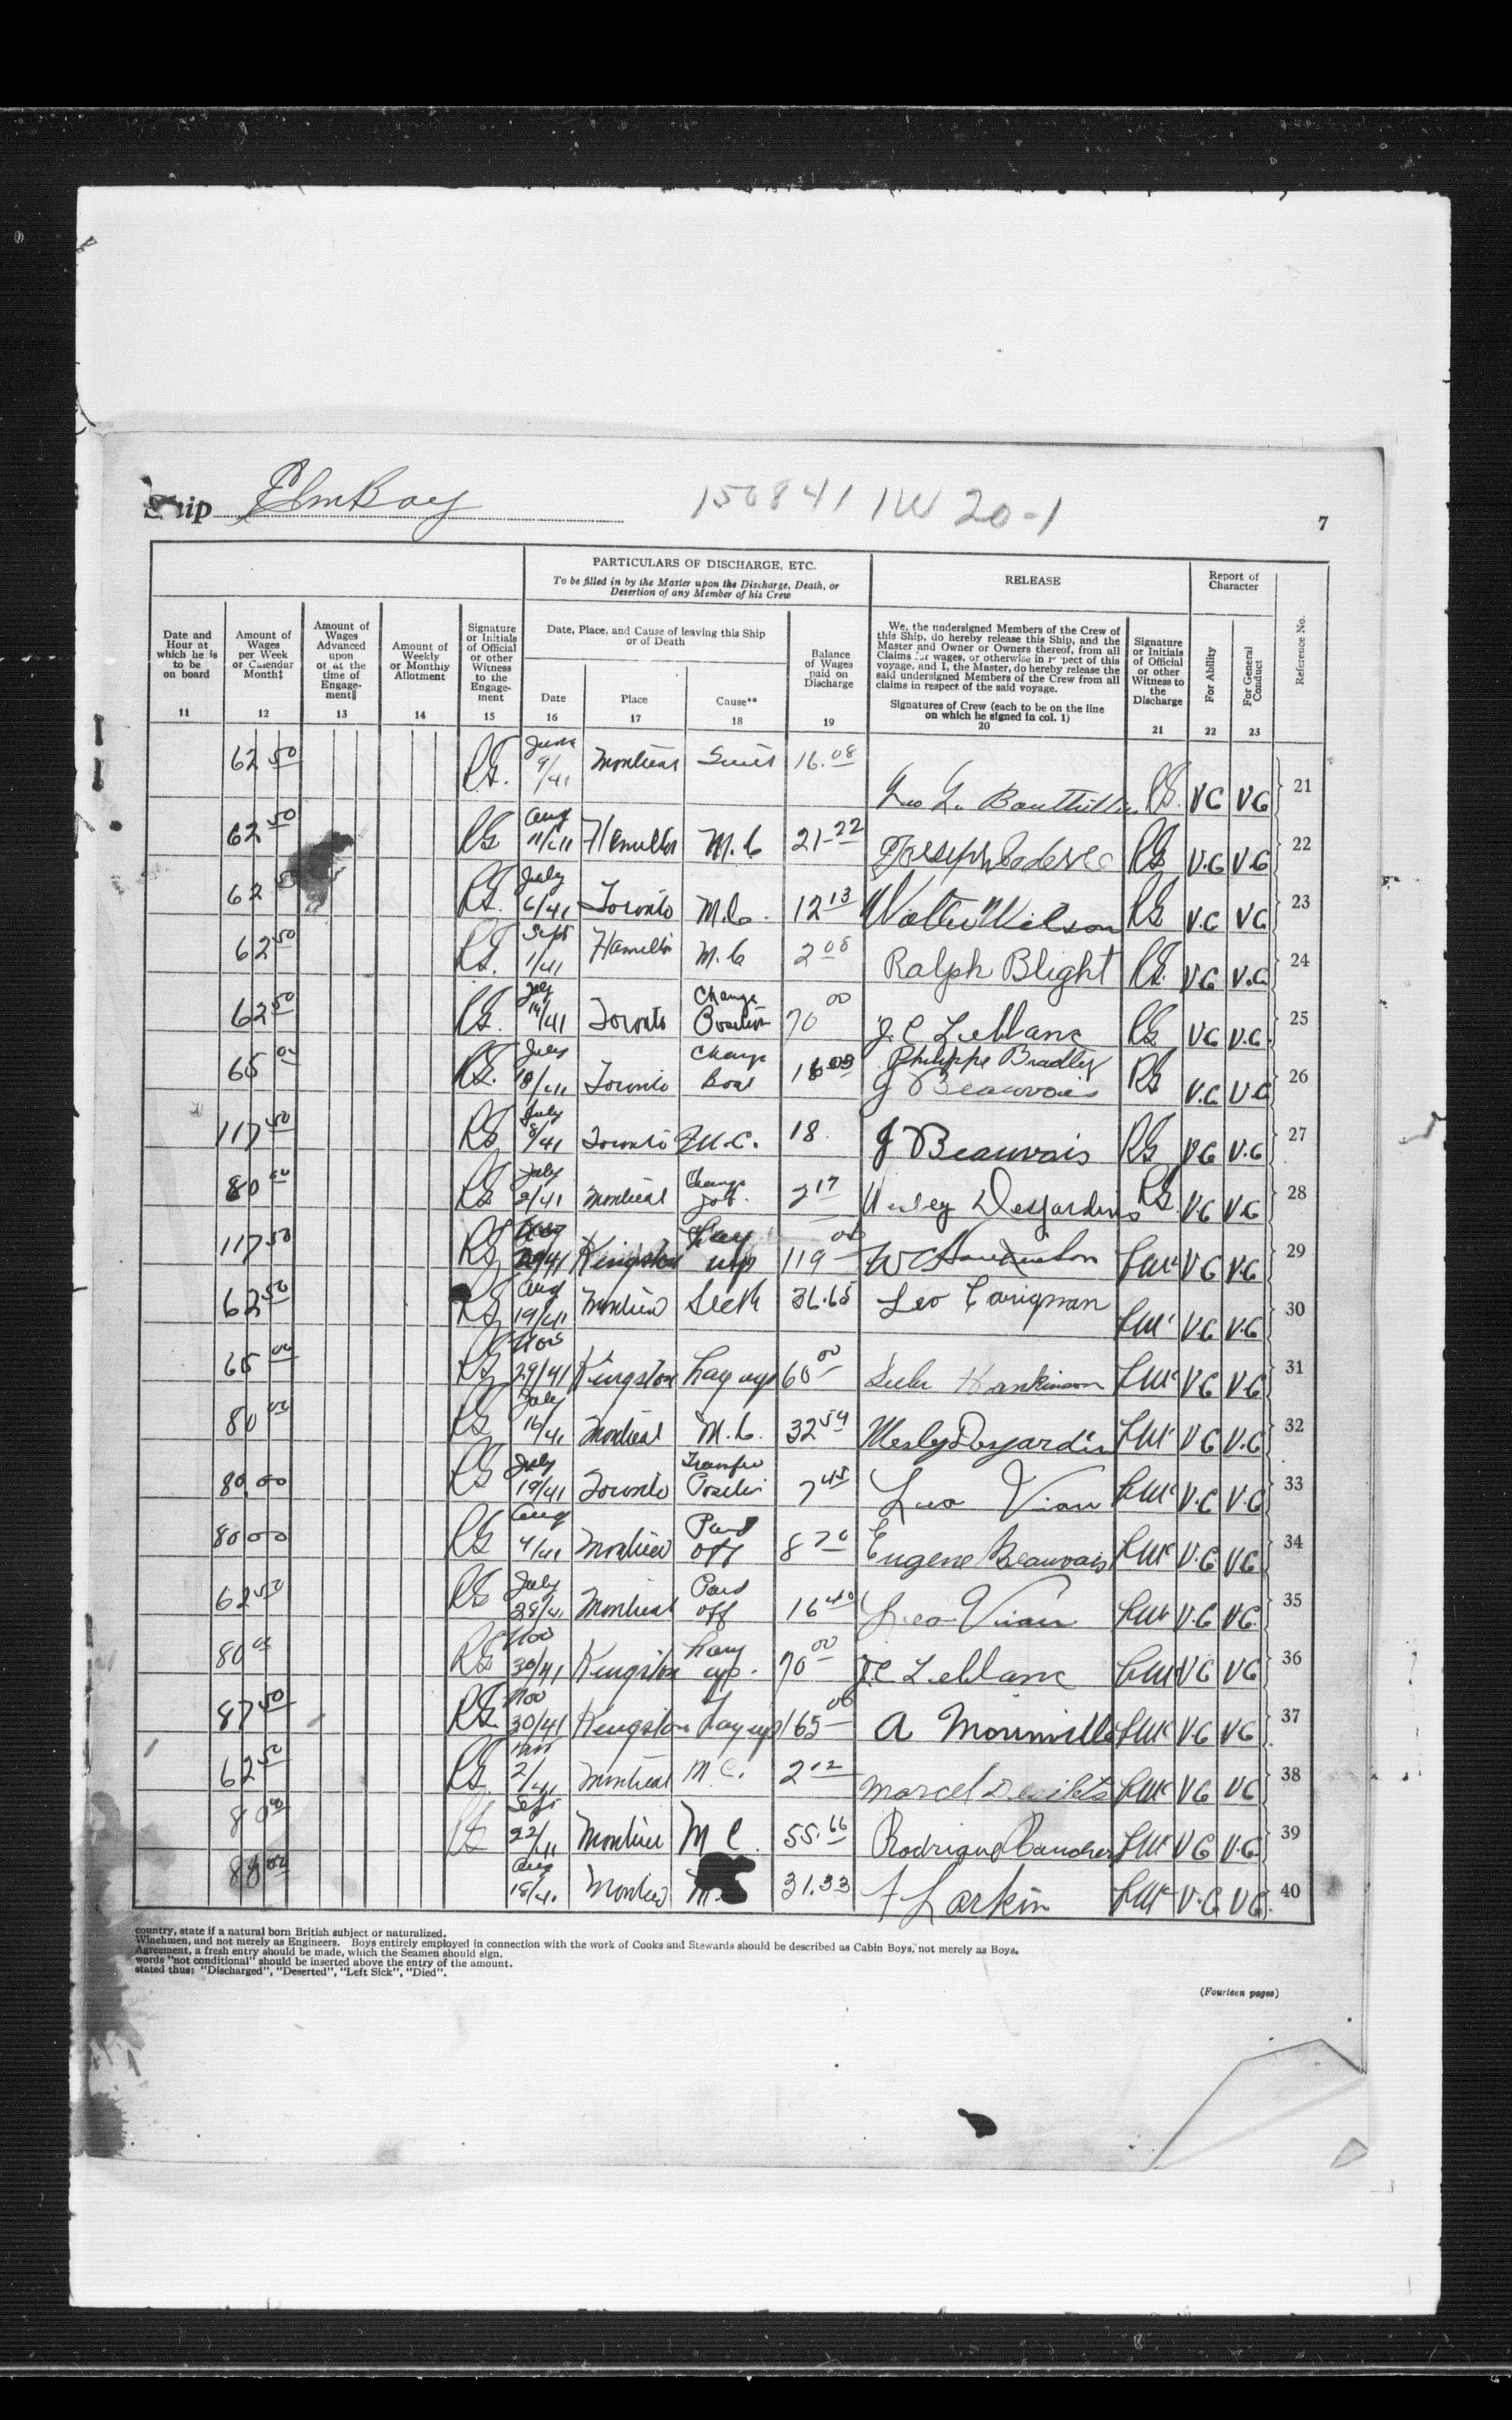 Ship ElmBay 150841 IW 20-1
7
PARTICULARS OF DISCHARGE, ETC.
To be filled in by the Master upon the Discharge, Death, or
Desertion of any Member of his Crew
RELEASE
Report of
Character
Reference No.
Date and
Hour at
which he is
to be
on board
11
Amount of
Wages
per Week
or Calendar
Month‡
12
Amount of
Wages
Advanced
upon
or at the
time of
Engage-
ment‖
13
Amount of
Weekly
or Monthly
Allotment
14
Signature
or Initials
of Official
or other
Witness
to the
Engage-
ment
15
Date, Place, and Cause of leaving this Ship
or of Death
Date
16
Place
17
Cause**
18
Balance
of Wages
paid on
Discharge
19
We, the undersigned Members of the Crew of
this Ship, do hereby release this Ship, and the
Master and Owner or Owners thereof, from all
Claims for wages, or otherwise in respect of this
voyage, and I, the Master, do hereby release the
said undersigned Members of the Crew from all
claims in respect of the said voyage.
Signatures of Crew (each to be on the line
on which he signed in col. 1)
20
Signature
or Initials
of Official
or other
Witness to
the
Discharge
21
For Ability
22
For General
Conduct
23
62 50 RG. June 9/41 Montreal 16.08 RG. VG VG 21
62 50 RG Aug 11/41 Hamilton M.C 21-22 Joseph RG V.G V.G 22
62 RG. July 6/41 Toronto M.C. 12 13 Walter Wilson RG V.G VG 23
62 50 RG. Sept 1/41 Hamilton M.C 2 08 Ralph Blight RG. V.G V.G 24
62 50 RG. July 14/41 Toronto Change Position 70 00 J.C LeBlanc RG VG V.G. 25
65 00 RG. July 18/41 Toronto Change Boat Philippe Bradley J Beauvais RG V.G V.G 26
117 50 RG July 8/41 Toronto M.C. 18. J Beauvais RG VG V.G 27
80 00 RG July 2/41 Montreal Change job. 2 17 Wesley Desjardins RG. V.G V.G 28
117 50 RG Nov /41 Kingston Lay up 119 00 W C VG V.G 29
62 50 RG Aug 19/41 Montreal Sick 36.65 Leo Carignan V.G V.G 30
65 00 RG Nov 29/41 Kingston Lay up 60 00 Hankinson VG V.G 31
80 00 RG July 16/41 Montreal M.C. 32 54 Wesley Desjardins VG V.G 32
80.00 RG July 19/41 Toronto Transfer Position 7 45 Leo Viau V.G V.G 33
80 00 RG Aug 4/41 Montreal Paid off 8 76 Eugene Beauvais V.G. VG. 34
62 50 RG July 28/41 Montreal Paid off 16 40 Leo Viau V.G VG. 35
80 00 RG Nov 30/41 Kingston Lay up. 70 00 J.C LeBlanc VG VG 36
87 50 RG. Nov 30/41 Kingston Lay up 165 00 A V.G VG 37
62 50 RG 2/41 Montreal M.C. 2 12 Marcel VG VG 38
80 00 RG Sept 22/41 Montreal M C. 55.66 Rodrigue VG V.G 39
00 Aug 18/41 Montreal M. 31.33 Larkin V.G VG. 40
country, state if a natural born British subject or naturalized.
Winchmen, and not merely as Engineers. Boys entirely employed in connection with the work of Cooks and Stewards should be described as Cabin Boys, not merely as Boys.
Agreement, a fresh entry should be made, which the Seamen should sign.
words "not conditional" should be inserted above the entry of the amount.
stated thus: "Discharged", "Deserted", "Left Sick", "Died".
(Fourteen pages)